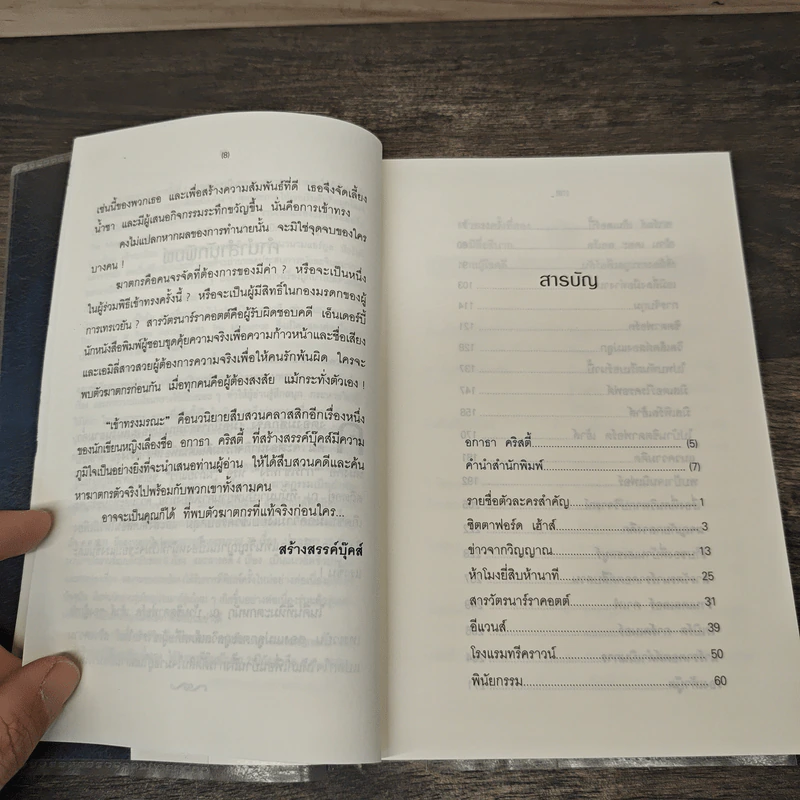 (8)
เช่นนี้ของพวกเธอ และเพื่อสร้างความสัมพันธ์ที่ดี เธอจึงจัดเลี้ยง
น้ำชา และมีผู้เสนอกิจกรรมระทึกขวัญขึ้น นั่นคือการเข้าทรง
คงไม่แปลกหากผลของการทำนายนั้น จะมิใช่จุดจบของใคร
บางคน !
ฆาตกรคือคนจรจัดที่ต้องการของมีค่า ? หรือจะเป็นหนึ่ง
ในผู้ร่วมพิธีเข้าทรงครั้งนี้ ? หรือจะเป็นผู้มีสิทธิ์ในกองมรดกของผู้
การเทรเวยัน ? สารวัตรนาร์ราคอตต์คือผู้รับผิดชอบคดี เอ็นเดอร์บี้
นักหนังสือพิมพ์ผู้ชอบขุดคุ้ยความจริงเพื่อความก้าวหน้าและชื่อเสียง
และเอมิลี่สาวสวยผู้ต้องการความจริงเพื่อให้คนรักพ้นผิด ใครจะ
พบตัวฆาตกรก่อนกัน เมื่อทุกคนคือผู้ต้องสงสัย แม้กระทั่งตัวเอง !
“เข้าทรงมรณะ” คือนวนิยายสืบสวนคลาสสิกอีกเรื่องหนึ่ง
ของนักเขียนหญิงเลื่องชื่อ อกาธา คริสตี้ ที่สร้างสรรค์บุ๊คส์มีความ
ภูมิใจเป็นอย่างยิ่งที่จะนำเสนอท่านผู้อ่าน ให้ได้สืบสวนคดีและค้น
หาฆาตกรตัวจริงไปพร้อมกับพวกเขาทั้งสามคน
อาจจะเป็นคุณก็ได้ ที่พบตัวฆาตกรที่แท้จริงก่อนใคร...
สร้างสรรค์บุ๊คส์
สารบัญ
อกาธา คริสตี้ (5)
คำนำสำนักพิมพ์ (7)
รายชื่อตัวละครสำคัญ 1
ซิตตาฟอร์ด เฮ้าส์ 3
ข่าวจากวิญญาณ 13
ห้าโมงยี่สิบห้านาที 25
สารวัตรนาร์ราคอตต์ 31
อีแวนส์ 39
โรงแรมทรีคราวน์ 50
พินัยกรรม 60